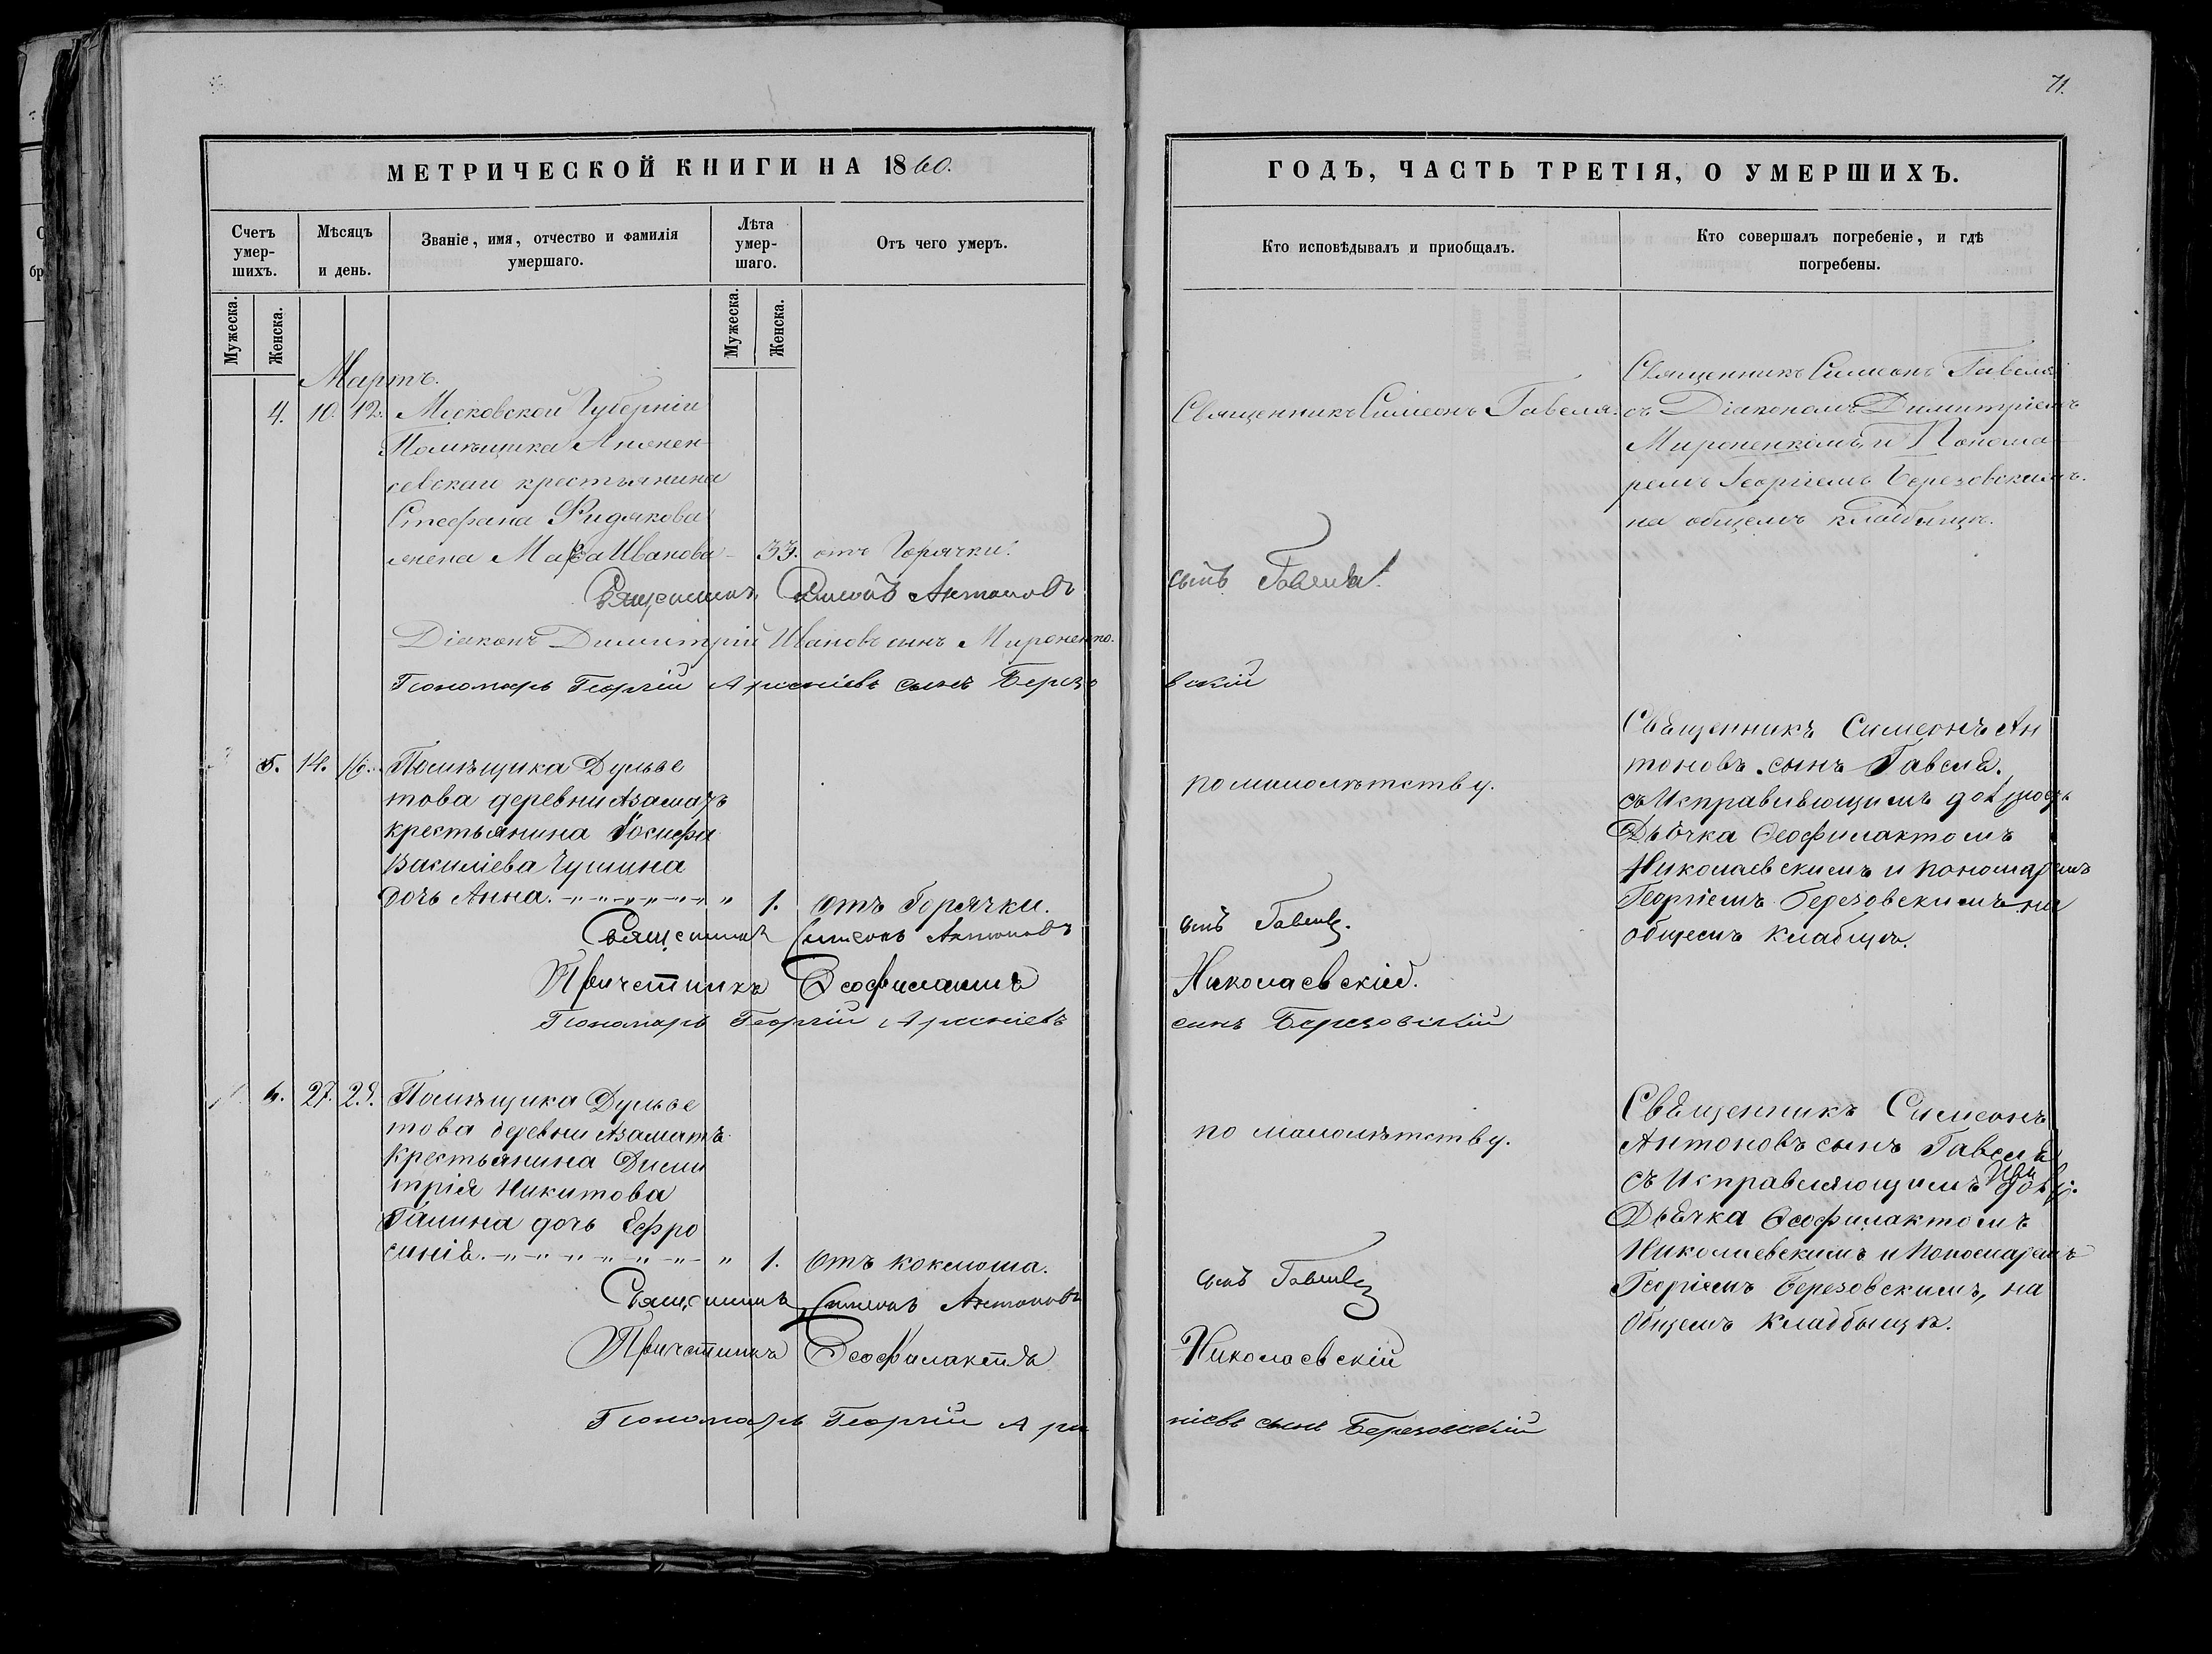 71.
МЕТРИЧЕСКОЙ КНИГИ НА 1860.
Счетъ умер-шихъ.
Мѣсяцъ и день.
Званіе, имя, отчество и фамилія умершаго.
Лѣта умер-шаго.
Отъ чего умеръ.
Мужеска.
Женска.
Мужеска.
Женска.
Мартъ.
4. 10. 12. Московской Губерніи
Помѣщика
крестьянина
Стефана
жена Иванова 33. отъ Горячки.
Священникъ Симеонъ Антоновъ
Діаконъ Димитрій Ивановъ сынъ Мироненко.
Пономарь Георгій Арсеніевъ сынъ Березо
5. 14. 16. Помѣщика Дульве
това деревни Азаматъ
крестьянина Іосифа
Василіева
дочь Анна. 1. отъ Горячки.
Священникъ Симеонъ Антоновъ
Причетникъ Ѳеофилактъ
Пономарь Георгій Арсеніевъ
6. 27. 29. Помѣщика Дульве
това деревни Азаматъ
крестьянина Дими
трія Никитова
Галина дочь Ефро
синія. 1. отъ коклюша.
Священникъ Симеонъ Антоновъ
Причетникъ Ѳеофилактъ
Пономарь Георгій Арсе
ГОДЪ, ЧАСТЬ ТРЕТІЯ, О УМЕРШИХЪ.
Кто исповѣдывалъ и пріобщалъ.
Кто совершалъ погребеніе, и гдѣ погребены.
Священникъ Симеонъ Гавеля.
сынъ Гавеля.
вскій
по малолѣтству.
сынъ Гавеля.
Николаевскій.
сынъ Березовскій
по малолѣтству.
сынъ Гавеля
Николаевскій
ніевъ сынъ Березовскій
Священникъ Симеонъ Гавеля
съ Діакономъ Димитріемъ
Мироненкомъ, и Понома-
ремъ Георгіемъ Березовскимъ.
на общемъ кладбищѣ.
Священникъ Симеонъ Ан
тоновъ сынъ Гавеля.
съ Исправляющимъ
Дьячка Ѳеофилактомъ
Николаевскимъ и пономаремъ
Георгіемъ Березовскимъ на
общемъ
Священникъ Симеонъ
Антоновъ сынъ Гавеля
съ Исправляющимъ
Дьячка Ѳеофилактомъ
Николаевскимъ и Пономаремъ
Георгіемъ Березовскимъ, на
общемъ кладбыщѣ.